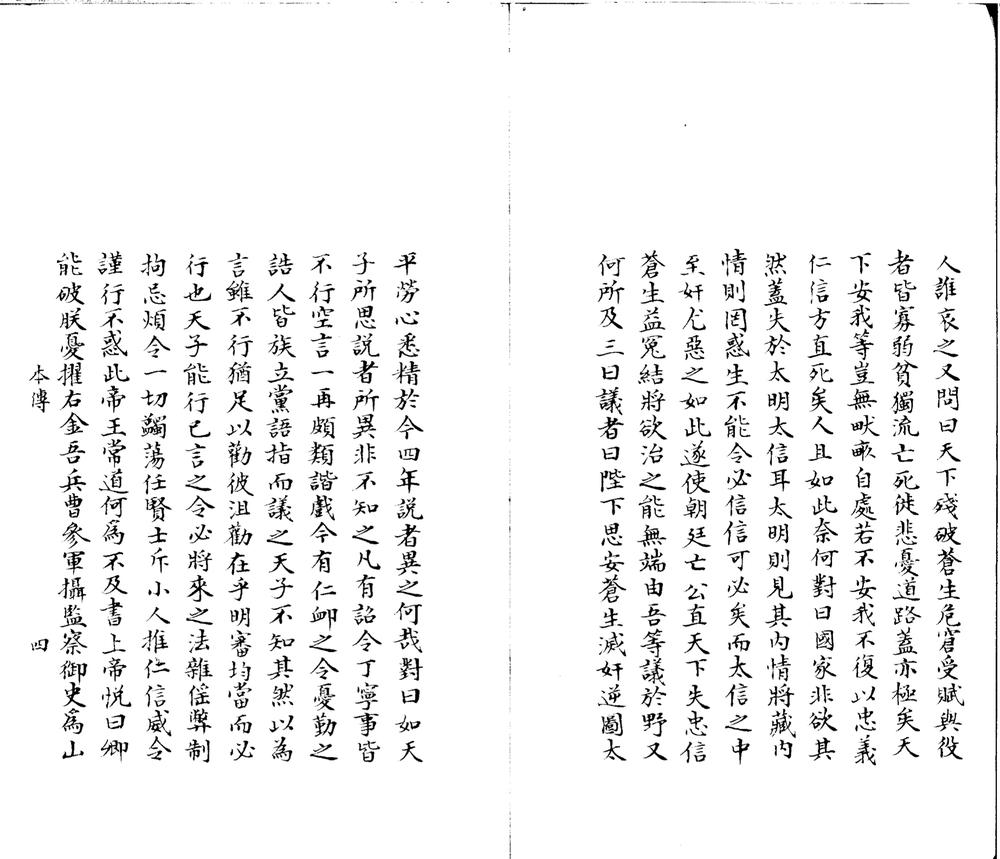 人誰哀之又問曰天下殘破蒼生危窘受賦與役
者皆寡弱貧獨流亡死徙悲憂道路蓋亦極矣天
下安我等豈無畎畝自處若不安我不復以忠義
仁信方直死矣人且如此奈何對曰國家非欲其
然蓋失於太明太信耳太明則見其內情將藏內
情則罔惑生不能令必信信可必矣而太信之中
至奸尤惡之如此遂使朝廷亡公直天下失忠信
蒼生益冤結將欲治之能無端由吾等議於野又
何所及三曰議者曰陛下思安蒼生滅奸逆圖太
平勞心悉精於今四年說者異之何哉對曰如天
子所思說者所異非不知之凡有詔令丁寧事皆
不行空言一再頗類諧戲今有仁卹之令憂勤之
誥人皆族立黨語指而議之天子不知其然以為
言雖不行猶足以勸彼沮勸在乎明審均當而必
行也天子能行已言之令必將來之法雜傜弊制
拘忌煩令一切蠲蕩任賢士斥小人推仁信威令
謹行不惑此帝王常道何爲不及書上帝悅曰卿
能破朕憂擢右金吾兵曹參軍攝監察御史爲山
本傳 四